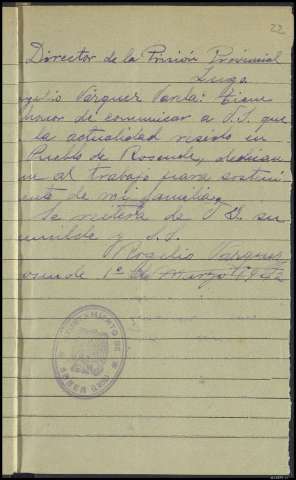 22
Director de la Prisión Provincial
Lugo.
gelio Várquez Varela: tiene
honor de comunicar a V.S. que
la actualidad resido en
Pueblo de Rosende, dedican
me al trabajo para sosteni
ento de mi familia,
Se reitera de V.S. su
umilde y S.S.
Rogelio Vázquez
osende 1º de Marzo 1942
AYUNTAMIENTO DE